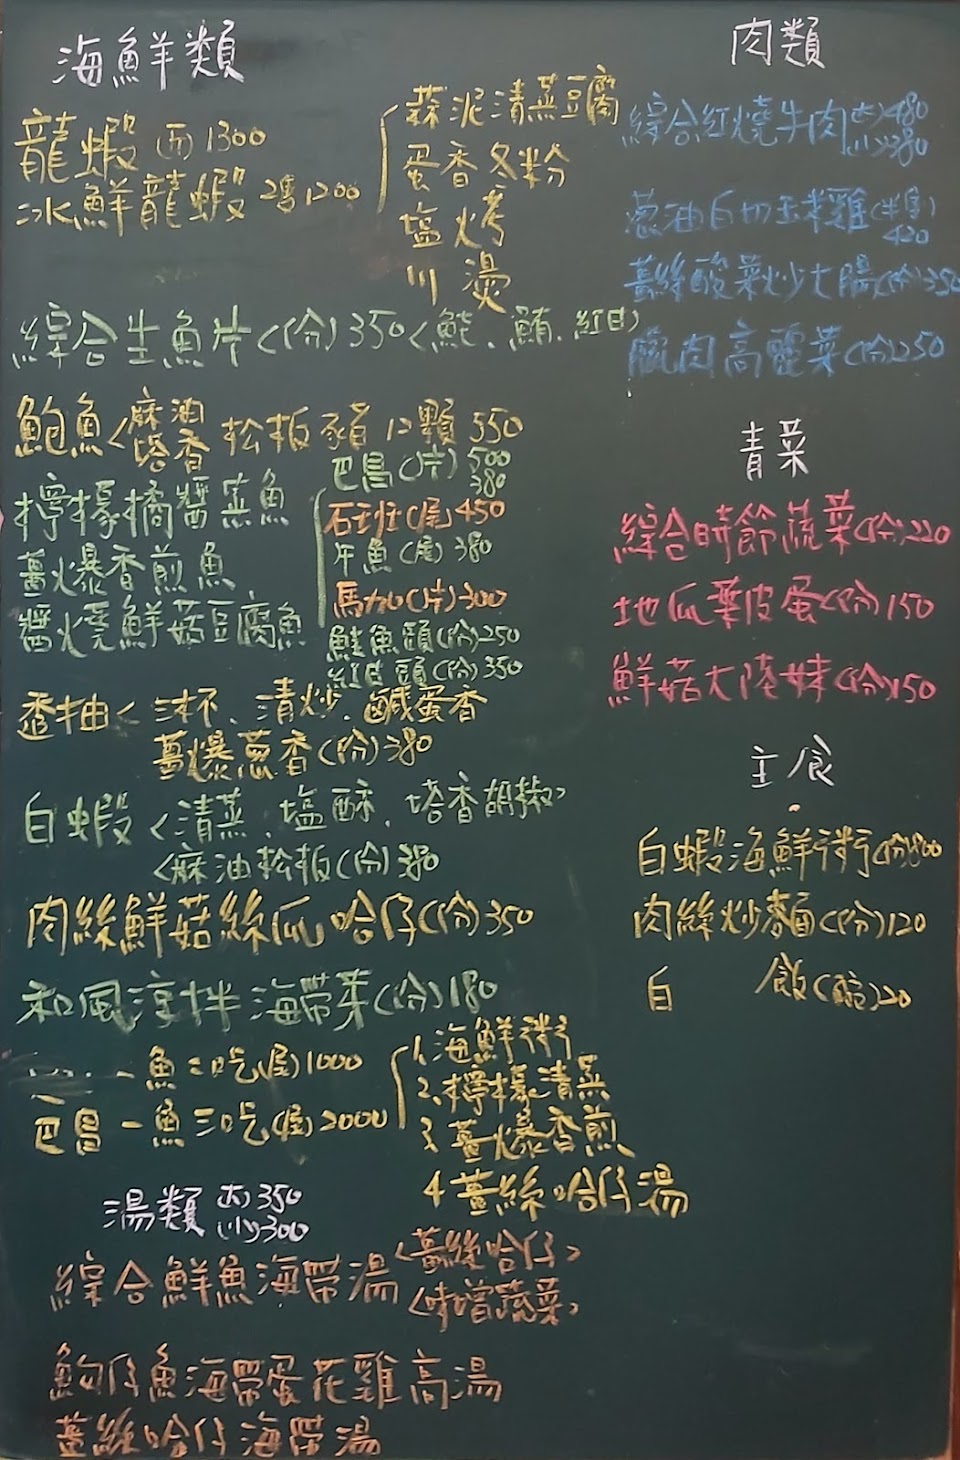 海鮮類
龍蝦(斤)1300
冰鮮龍蝦2隻1200
蒜泥清蒸豆腐
蛋香冬粉
塩烤
川燙
綜合生魚片(份)350<鮭、鮪、紅甘>
鮑魚<麻油
塔香 松板豬12顆550
檸檬橘醬蒸魚
薑爆香煎魚
醬燒鮮菇豆腐魚
巴昌(片)500
380
石(尾)450
午魚(尾)380
馬加(片)300
鮭魚頭(份)250
頭(份)350
透抽<三杯、清炒、鹹蛋香
薑爆蔥香(份)380
白蝦<清蒸、塩酥、塔香胡椒>
<麻油松板(份)380
肉絲鮮菇絲瓜哈仔(份)350
和風涼拌海帶菜(份)180
一魚三吃(尾)1000
巴昌一魚三吃(尾)2000
1.海鮮粥
2.檸檬清蒸
3.薑爆香煎
4薑絲哈仔湯
湯類(大)350
(小)300
綜合鮮魚海帶湯<薑絲哈仔>
<味噌蔬菜>
魩仔魚海帶蛋花雞高湯
薑絲哈仔海帶湯
肉類
綜合紅燒牛肉(大)480
(小)380
蔥油白切玉米雞(半隻)
420
薑絲酸菜炒大腸(份)350
臘肉高麗菜(份)250
青菜
綜合時節蔬菜(份)220
地瓜葉皮蛋(份)150
鮮菇大陸妹(份)150
主食
白蝦海鮮粥(份)800
肉絲炒麵(份)120
白 飯(碗)20